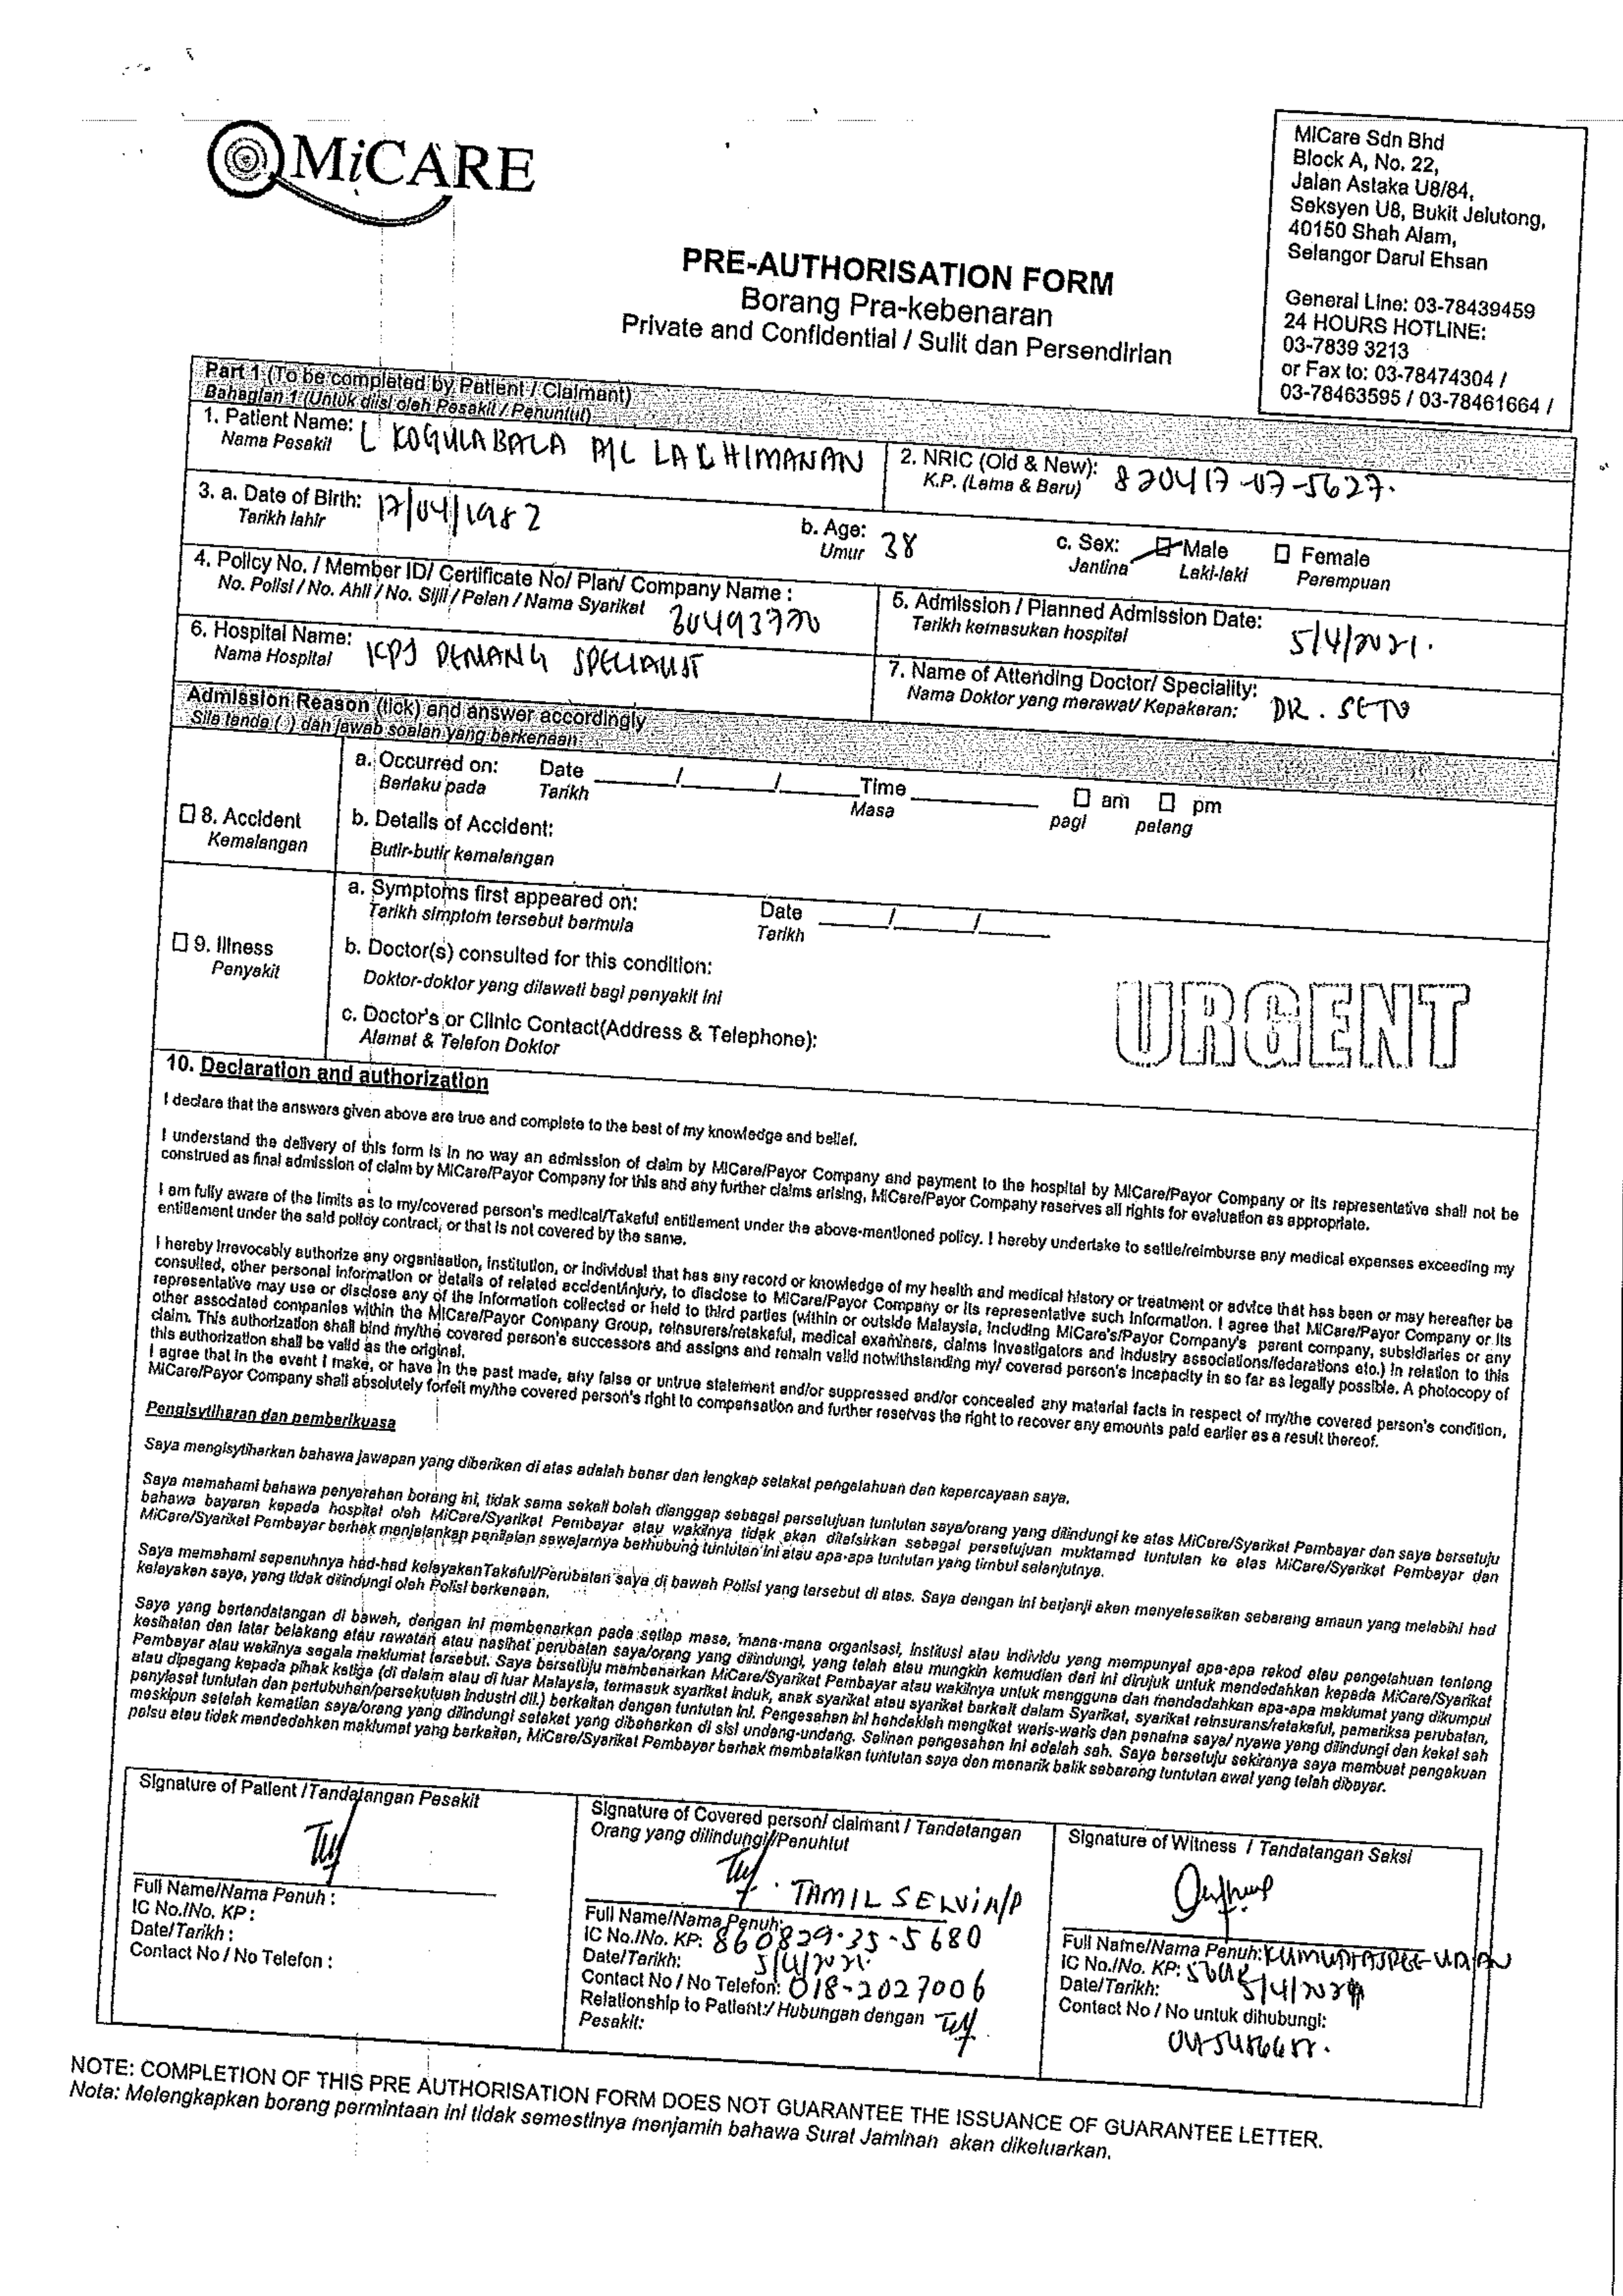 MiCARE
MiCare Sdn Bhd
Block A, No. 22,
Jalan Astaka U8/84,
Seksyen U8, Bukit Jelutong,
40150 Shah Alam,
Selangor Darul Ehsan
General Line: 03-78439459
24 HOURS HOTLINE:
03-7839 3213
or Fax to: 03-78474304 /
03-78463595 / 03-78461664 /
PRE-AUTHORISATION FORM
Borang Pra-kebenaran
Private and Confidential / Sulit dan Persendirian
Part 1 (To be completed by Patient / Claimant)
Bahagian 1 (Untuk diisi oleh Pesakit / Penuntut)
1. Patient Name: L KOGULABALA A/L LACHIMANAN
Nama Pesakit
2. NRIC (Old & New): 820417-07-5627.
K.P. (Lama & Baru)
3. a. Date of Birth: 17/04/1982
Tarikh lahir
b. Age: 38
Umur
c. Sex: Male Female
Jantina Laki-laki Perempuan
4. Policy No. / Member ID/ Certificate No/ Plan/ Company Name :
No. Polisi / No. Ahli / No. Sijil / Pelan / Nama Syarikat
5. Admission / Planned Admission Date: 5/4/2021.
Tarikh kemasukan hospital
6. Hospital Name: KPJ PENANG SPECIALIST
Nama Hospital
7. Name of Attending Doctor/ Speciality:
Nama Doktor yang merawat/ Kepakaran: DR.
Admission Reason (tick) and answer accordingly
Sila tanda ( ) dan jawab soalan yang berkenaan
8. Accident
Kemalangan
a. Occurred on: Date / / Time am pm
Berlaku pada Tarikh Masa pagi petang
b. Details of Accident:
Butir-butir kemalangan
9. Illness
Penyakit
a. Symptoms first appeared on: Date / /
Tarikh simptom tersebut bermula Tarikh
b. Doctor(s) consulted for this condition:
Doktor-doktor yang dilawati bagi penyakit ini
c. Doctor's or Clinic Contact(Address & Telephone):
Alamat & Telefon Doktor
URGENT
10. Declaration and authorization
I declare that the answers given above are true and complete to the best of my knowledge and belief.
I understand the delivery of this form is in no way an admission of claim by MiCare/Payor Company and payment to the hospital by MiCare/Payor Company or its representative shall not be
construed as final admission of claim by MiCare/Payor Company for this and any further claims arising, MiCare/Payor Company reserves all rights for evaluation as appropriate.
I am fully aware of the limits as to my/covered person's medical/Takaful entitlement under the above-mentioned policy. I hereby undertake to settle/reimburse any medical expenses exceeding my
entitlement under the said policy contract, or that is not covered by the same.
I hereby irrevocably authorize any organisation, institution, or individual that has any record or knowledge of my health and medical history or treatment or advice that has been or may hereafter be
consulted, other personal information or details of related accident/injury, to disclose to MiCare/Payor Company or its representative such information. I agree that MiCare/Payor Company or its
representative may use or disclose any of the information collected or held to third parties (within or outside Malaysia, including MiCare's/Payor Company's parent company, subsidiaries or any
other associated companies within the MiCare/Payor Company Group, reinsurers/retakaful, medical examiners, claims investigators and industry associations/federations etc.) in relation to this
claim. This authorization shall bind my/the covered person's successors and assigns and remain valid notwithstanding my/ covered person's incapacity in so far as legally possible. A photocopy of
this authorization shall be valid as the original.
I agree that in the event I make, or have in the past made, any false or untrue statement and/or suppressed and/or concealed any material facts in respect of my/the covered person's condition,
MiCare/Payor Company shall absolutely forfeit my/the covered person's right to compensation and further reserves the right to recover any amounts paid earlier as a result thereof.
Pengisytiharan dan pemberikuasa
Saya mengisytiharkan bahawa jawapan yang diberikan di atas adalah benar dan lengkap setakat pengetahuan dan kepercayaan saya.
Saya memahami bahawa penyerahan borang ini, tidak sama sekali boleh dianggap sebagai persetujuan tuntutan saya/orang yang dilindungi ke atas MiCare/Syarikat Pembayar dan saya bersetuju
bahawa bayaran kepada hospital oleh MiCare/Syarikat Pembayar atau wakilnya tidak akan ditafsirkan sebagai persetujuan muktamad tuntutan ke atas MiCare/Syarikat Pembayar dan
MiCare/Syarikat Pembayar berhak menjalankan penilaian sewajarnya berhubung tuntutan ini atau apa-apa tuntutan yang timbul selanjutnya.
Saya memahami sepenuhnya had-had kelayakanTakaful/Perubatan saya di bawah Polisi yang tersebut di atas. Saya dengan ini berjanji akan menyelesaikan sebarang amaun yang melebihi had
kelayakan saya, yang tidak dilindungi oleh Polisi berkenaan.
Saya yang bertandatangan di bawah, dengan ini membenarkan pada setiap masa, mana-mana organisasi, institusi atau individu yang mempunyai apa-apa rekod atau pengetahuan tentang
kesihatan dan latar belakang atau rawatan atau nasihat perubatan saya/orang yang dilindungi, yang telah atau mungkin kemudian dari ini dirujuk untuk mendedahkan kepada MiCare/Syarikat
Pembayar atau wakilnya segala maklumat tersebut. Saya bersetuju membenarkan MiCare/Syarikat Pembayar atau wakilnya untuk mengguna dan mendedahkan apa-apa maklumat yang dikumpul
atau dipegang kepada pihak ketiga (di dalam atau di luar Malaysia, termasuk syarikat induk, anak syarikat atau syarikat berkait dalam Syarikat, syarikat reinsurans/retakaful, pemeriksa perubatan,
penyiasat tuntutan dan pertubuhan/persekutuan industri dll.) berkaitan dengan tuntutan ini. Pengesahan ini hendaklah mengikat waris-waris dan penama saya/ nyawa yang dilindungi dan kekal sah
meskipun setelah kematian saya/orang yang dilindungi setakat yang dibenarkan di sisi undang-undang. Salinan pengesahan ini adalah sah. Saya bersetuju sekiranya saya membuat pengakuan
palsu atau tidak mendedahkan maklumat yang berkaitan, MiCare/Syarikat Pembayar berhak membatalkan tuntutan saya dan menarik balik sebarang tuntutan awal yang telah dibayar.
Signature of Patient /Tandatangan Pesakit
Full Name/Nama Penuh :
IC No./No. KP :
Date/Tarikh :
Contact No / No Telefon :
Signature of Covered person/ claimant / Tandatangan
Orang yang dilindungi/Penuntut
TAMIL SELVI A/P
Full Name/Nama Penuh:
IC No./No. KP: 860829-35-5680
Date/Tarikh: 5/4/2021.
Contact No / No Telefon: 018-2027006
Relationship to Patient:/ Hubungan dengan
Pesakit:
Signature of Witness / Tandatangan Saksi
Full Name/Nama Penuh:
IC No./No. KP:
Date/Tarikh: 5/4/2021
Contact No / No untuk dihubungi:
NOTE: COMPLETION OF THIS PRE AUTHORISATION FORM DOES NOT GUARANTEE THE ISSUANCE OF GUARANTEE LETTER.
Nota: Melengkapkan borang permintaan ini tidak semestinya menjamin bahawa Surat Jaminan akan dikeluarkan.